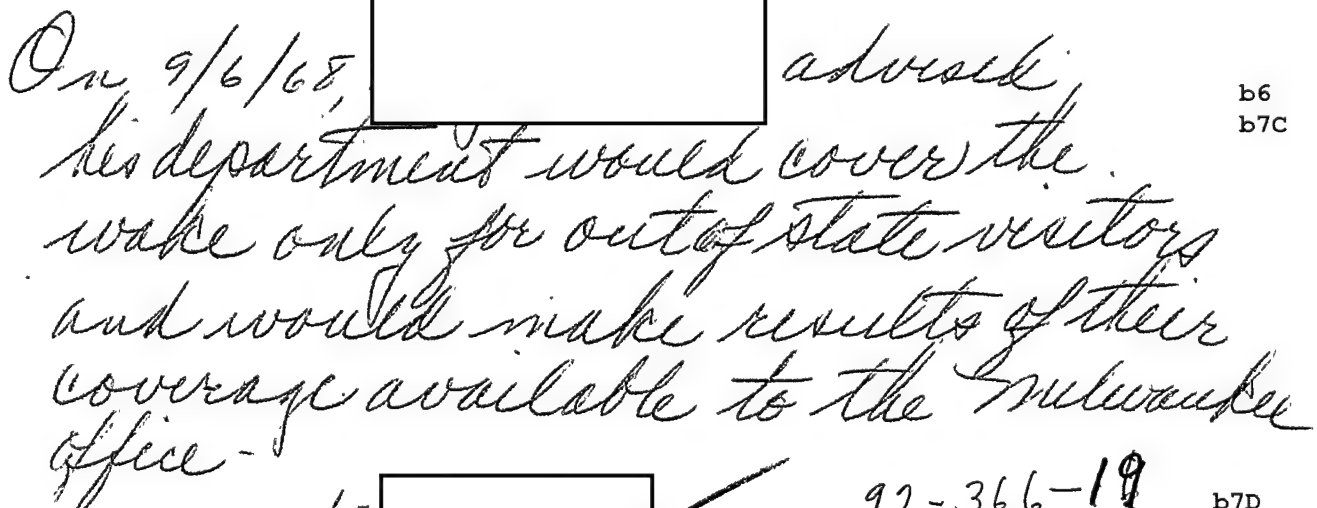 On 9/6/68, advised
b6
b7C
his department would cover the
wake only for out of state visitors
and would make results of their
coverage available to the Milwaukee
office -
92-366-19
b7D